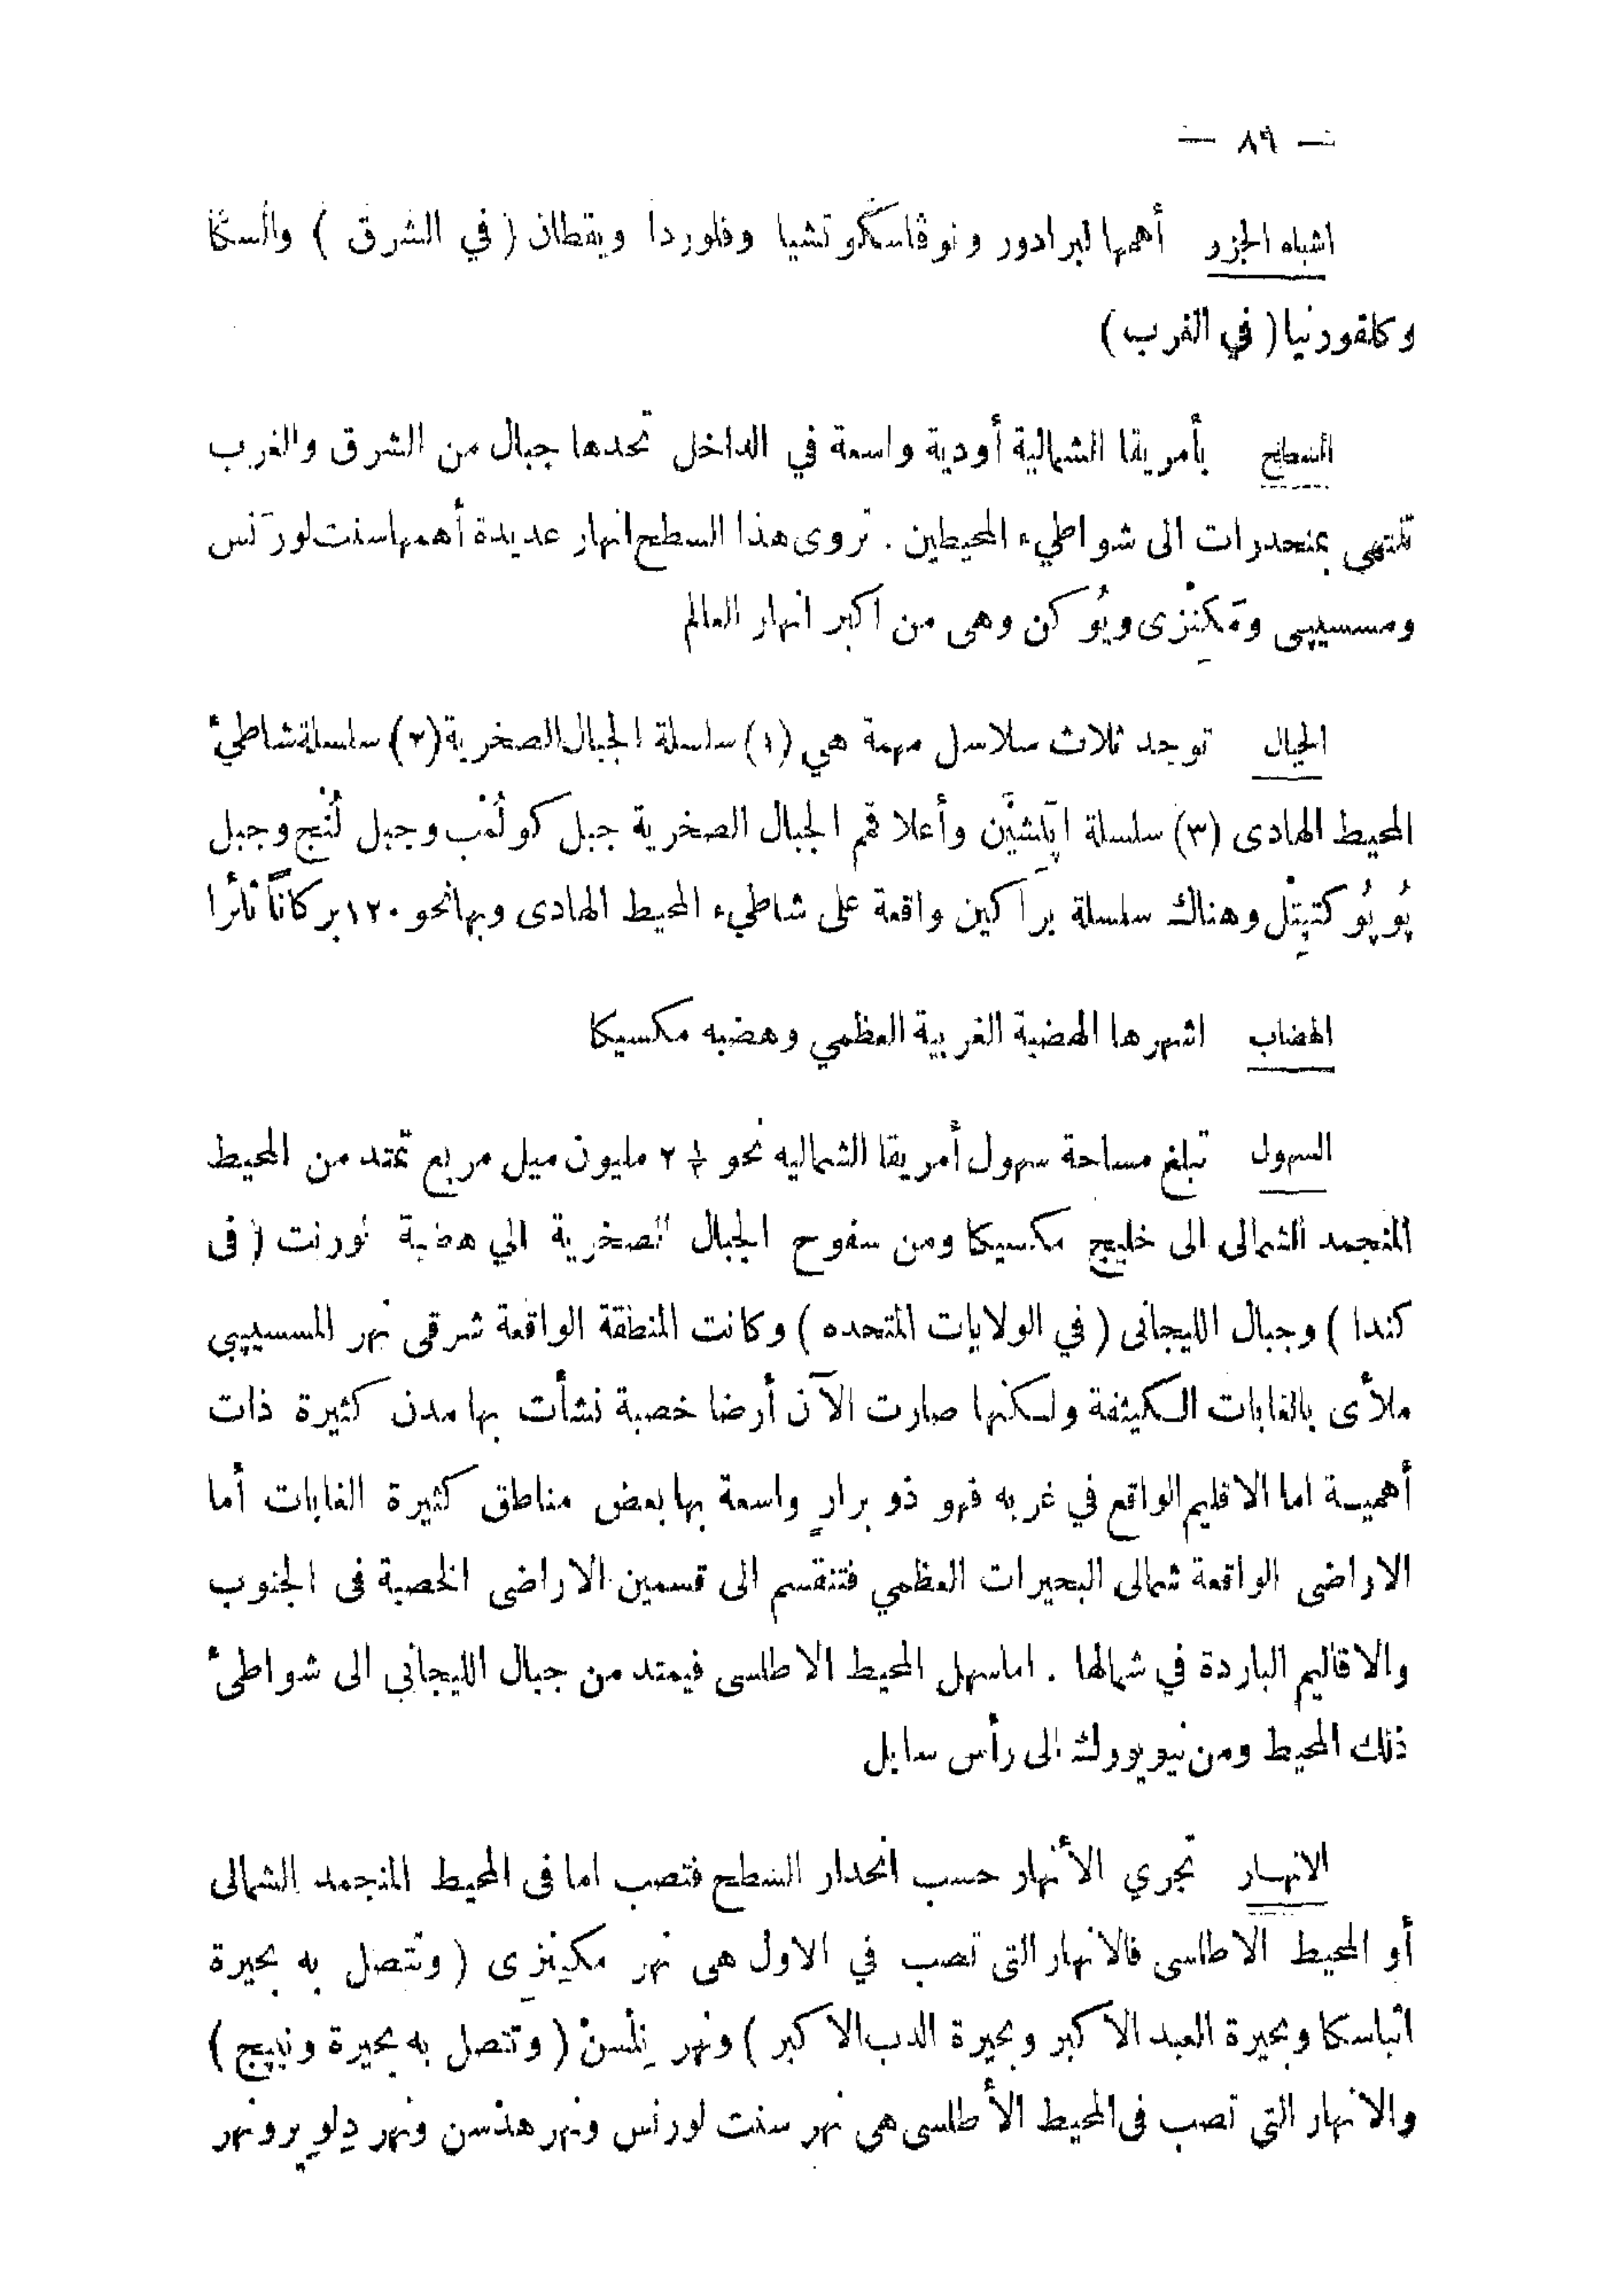 — ٨٩ —
اشباه الجزر أهمها لبرادور ونوڤاسكوتشيا وفلوردا ويقطان (في الشرق) والسكا
وكلفورنيا (في الغرب)
السطح بأمريقا الشمالية أودية واسعة في الداخل تحدها جبال من الشرق والغرب
تنتهى بمنحدرات الى شواطيء المحيطين . تروى هذا السطح انهار عديدة أهمها سنت لورَنس
ومسسيپى ومَكِنْزى ويُوكن وهى من اكبر انهار العالم
الجبال توجد ثلاث سلاسل مهمة هي (١) سلسلة الجبال الصخرية (٢) سلسلة شاطئ
المحيط الهادى (٣) سلسلة اَپَلَشَيَن وأعلا قمم الجبال الصخرية جبل كولُمْب وجبل لُنْج وجبل
پُوپُوكتپِتْل وهناك سلسلة براكين واقعة على شاطيء المحيط الهادى وبها نحو ١٢٠ بركاناً ثائرا
الهضاب اشهرها الهضبة الغربية العظمي وهضبه مكسيكا
السهول تبلغ مساحة سهول أمريقا الشماليه نحو ½ ٢ مليون ميل مربع تمتد من المحيط
المنجمد الشمالى الى خليج مكسيكا ومن سفوح الجبال الصخرية الي هضبة نورنت (فى
كندا) وجبال الليجانى (في الولايات المتحده) وكانت المنطقة الواقعة شرقى نهر المسسيپي
ملأى بالغابات الكثيفة ولكنها صارت الآن أرضا خصبة نشأت بها مدن كثيرة ذات
أهمية اما الاقليم الواقع في غربه فهو ذو برارٍ واسعة بها بعض مناطق كثيرة الغابات أما
الاراضى الواقعة شمالى البحيرات العظمي فتنقسم الى قسمين الاراضى الخصبة فى الجنوب
والاقاليم الباردة في شمالها . اما سهل المحيط الاطلسى فيمتد من جبال الليجانى الى شواطئ
ذلك المحيط ومن نيويورك الى رأس سابل
الانهار تجري الأنهار حسب انحدار السطح فتصب اما فى المحيط المنجمد الشمالى
أو المحيط الاطلسى فالانهار التى تصب في الاول هى نهر مكِنزى (وتتصل به بحيرة
اثباسكا وبحيرة العبد الاكبر وبحيرة الدب الاكبر) ونهر نِلْسنْ (وتتصل به بحيرة ونيپج)
والانهار التى تصب فى المحيط الأطلسى هى نهر سنت لورنس ونهر هدسن ونهر دِلوِير ونهر